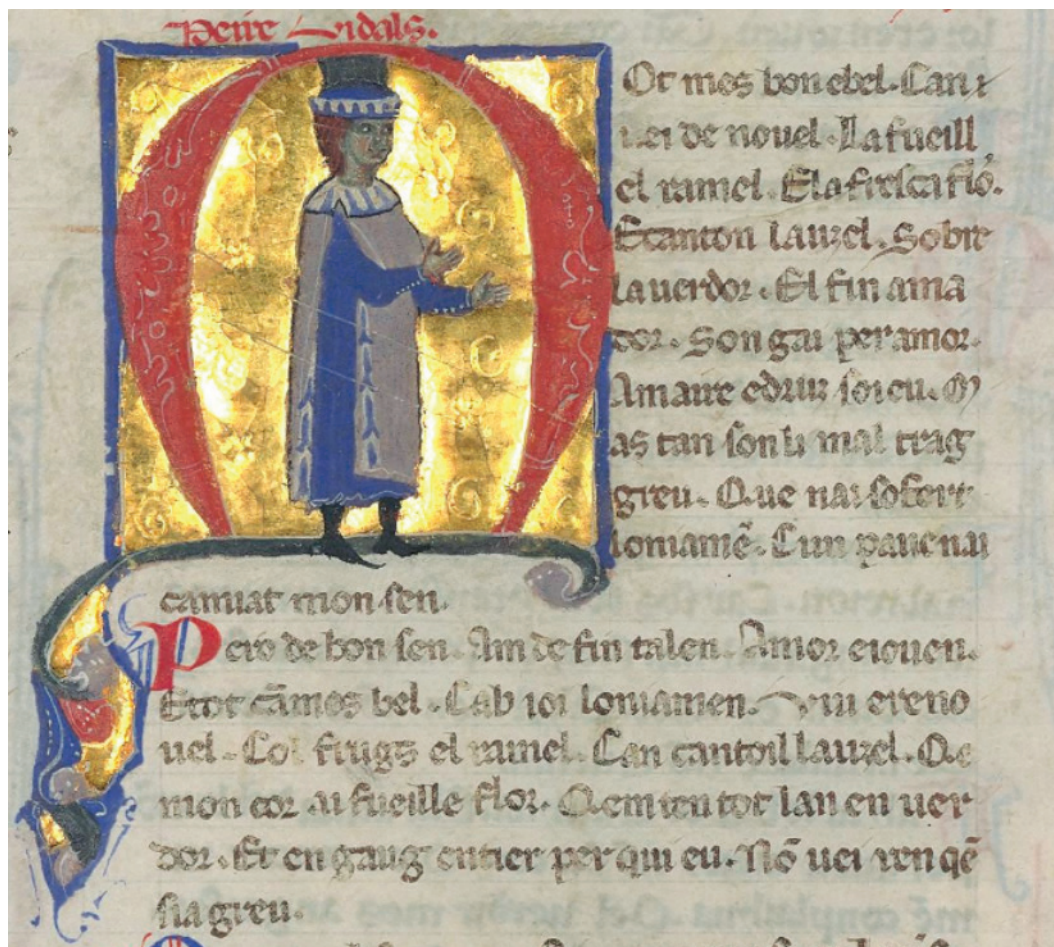 Peire Vidals.
Ot mes bon ebel. Can i
uei de nouel. La fueill
el ramel. E la frescaflo.
Ecanton lauzel. Sobre
la uerdor. El fin ama
dor. Son gai per amor.
Amaire edruz soi eu. M
as tan son li mal trag
greu. Que nai sofert
loniamē. Cun pauc nai
camiat mon sen.
Pero de bon sen. Am de fin talen. Amor eiouen.
E tot cāmes bel. Cab ioi loniamen. Viu ereno
uel. Col frugz el ramel. Can cantoil lauzel. Qe
mon cor ai fueille flor. Qem ten tot lan en uer
dor. Et en gaug entier per qui eu. Nō uei ren qē
sia greu.